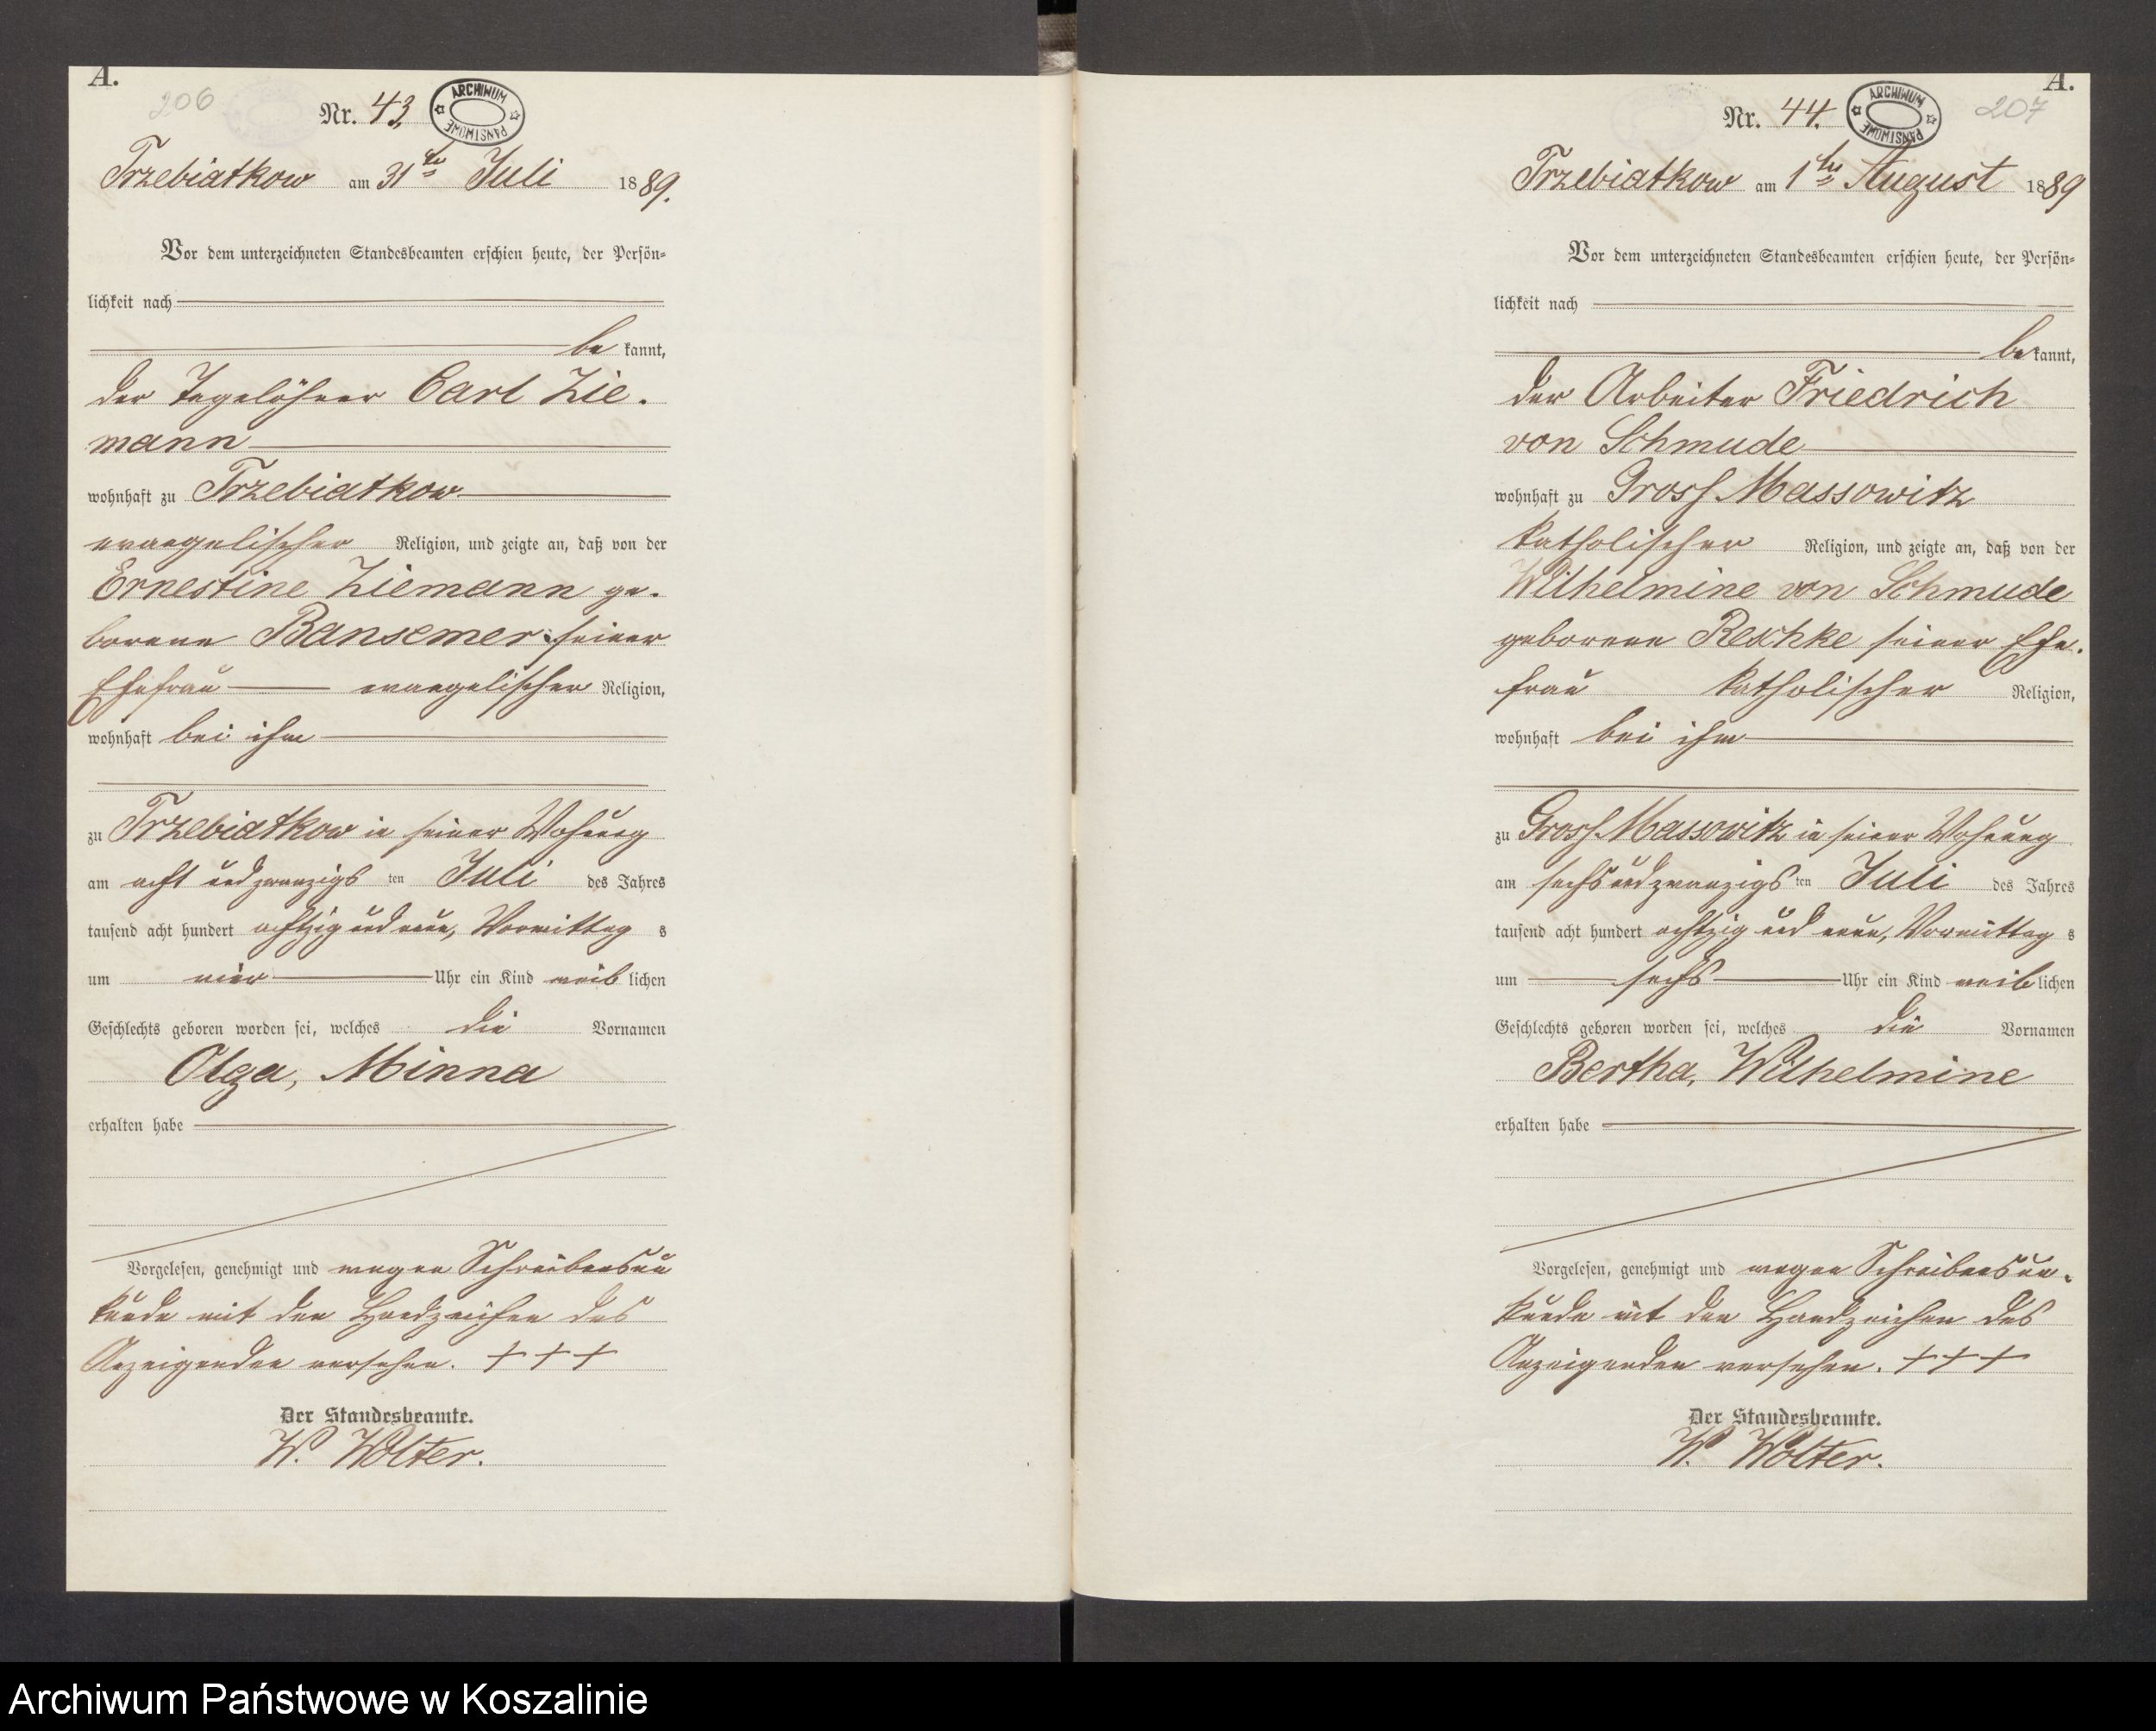 A.
206
Nr. 43.
ARCHIWUM PAŃSTWOWE
Trzebiatkow am 31ten Juli 1889.
Vor dem unterzeichneten Standesbeamten erschien heute, der Persön-
lichkeit nach
be kannt,
der Tagelöhner Carl Zie-
mann
wohnhaft zu Trzebiatkow
evangelischer Religion, und zeigte an, daß von der
Ernestine Ziemann ge-
borene Bansemer seiner
Ehefrau evangelischer Religion,
wohnhaft bei ihm
zu Trzebiatkow in seiner Wohnung
am acht und zwanzigs ten Juli des Jahres
tausend acht hundert achtzig und neun, Vormittag s
um vier Uhr ein Kind weib lichen
Geschlechts geboren worden sei, welches die Vornamen
Olga, Minna
erhalten habe
Vorgelesen, genehmigt und wegen Schreibensun
kunde mit den Handzeichen des
Anzeigenden versehen. + + +
Der Standesbeamte.
W. Wolter.
A.
207
Nr. 44.
ARCHIWUM PAŃSTWOWE
Trzebiatkow am 1ten August 1889
Vor dem unterzeichneten Standesbeamten erschien heute, der Persön-
lichkeit nach
be kannt,
der Arbeiter Friedrich
von Schmude
wohnhaft zu Gross Massowitz
katholischer Religion, und zeigte an, daß von der
Wilhelmine von Schmude
geborenen Reschke seiner Ehe-
frau katholischer Religion,
wohnhaft bei ihm
zu Gross Massowitz in seiner Wohnung
am sechs und zwanzigs ten Juli des Jahres
tausend acht hundert achtzig und neun, Vormittag s
um sechs Uhr ein Kind weib lichen
Geschlechts geboren worden sei, welches die Vornamen
Bertha, Wilhelmine
erhalten habe
Vorgelesen, genehmigt und wegen Schreibensun-
kunde mit den Handzeichen des
Anzeigenden versehen. + + +
Der Standesbeamte.
W. Wolter.
Archiwum Państwowe w Koszalinie